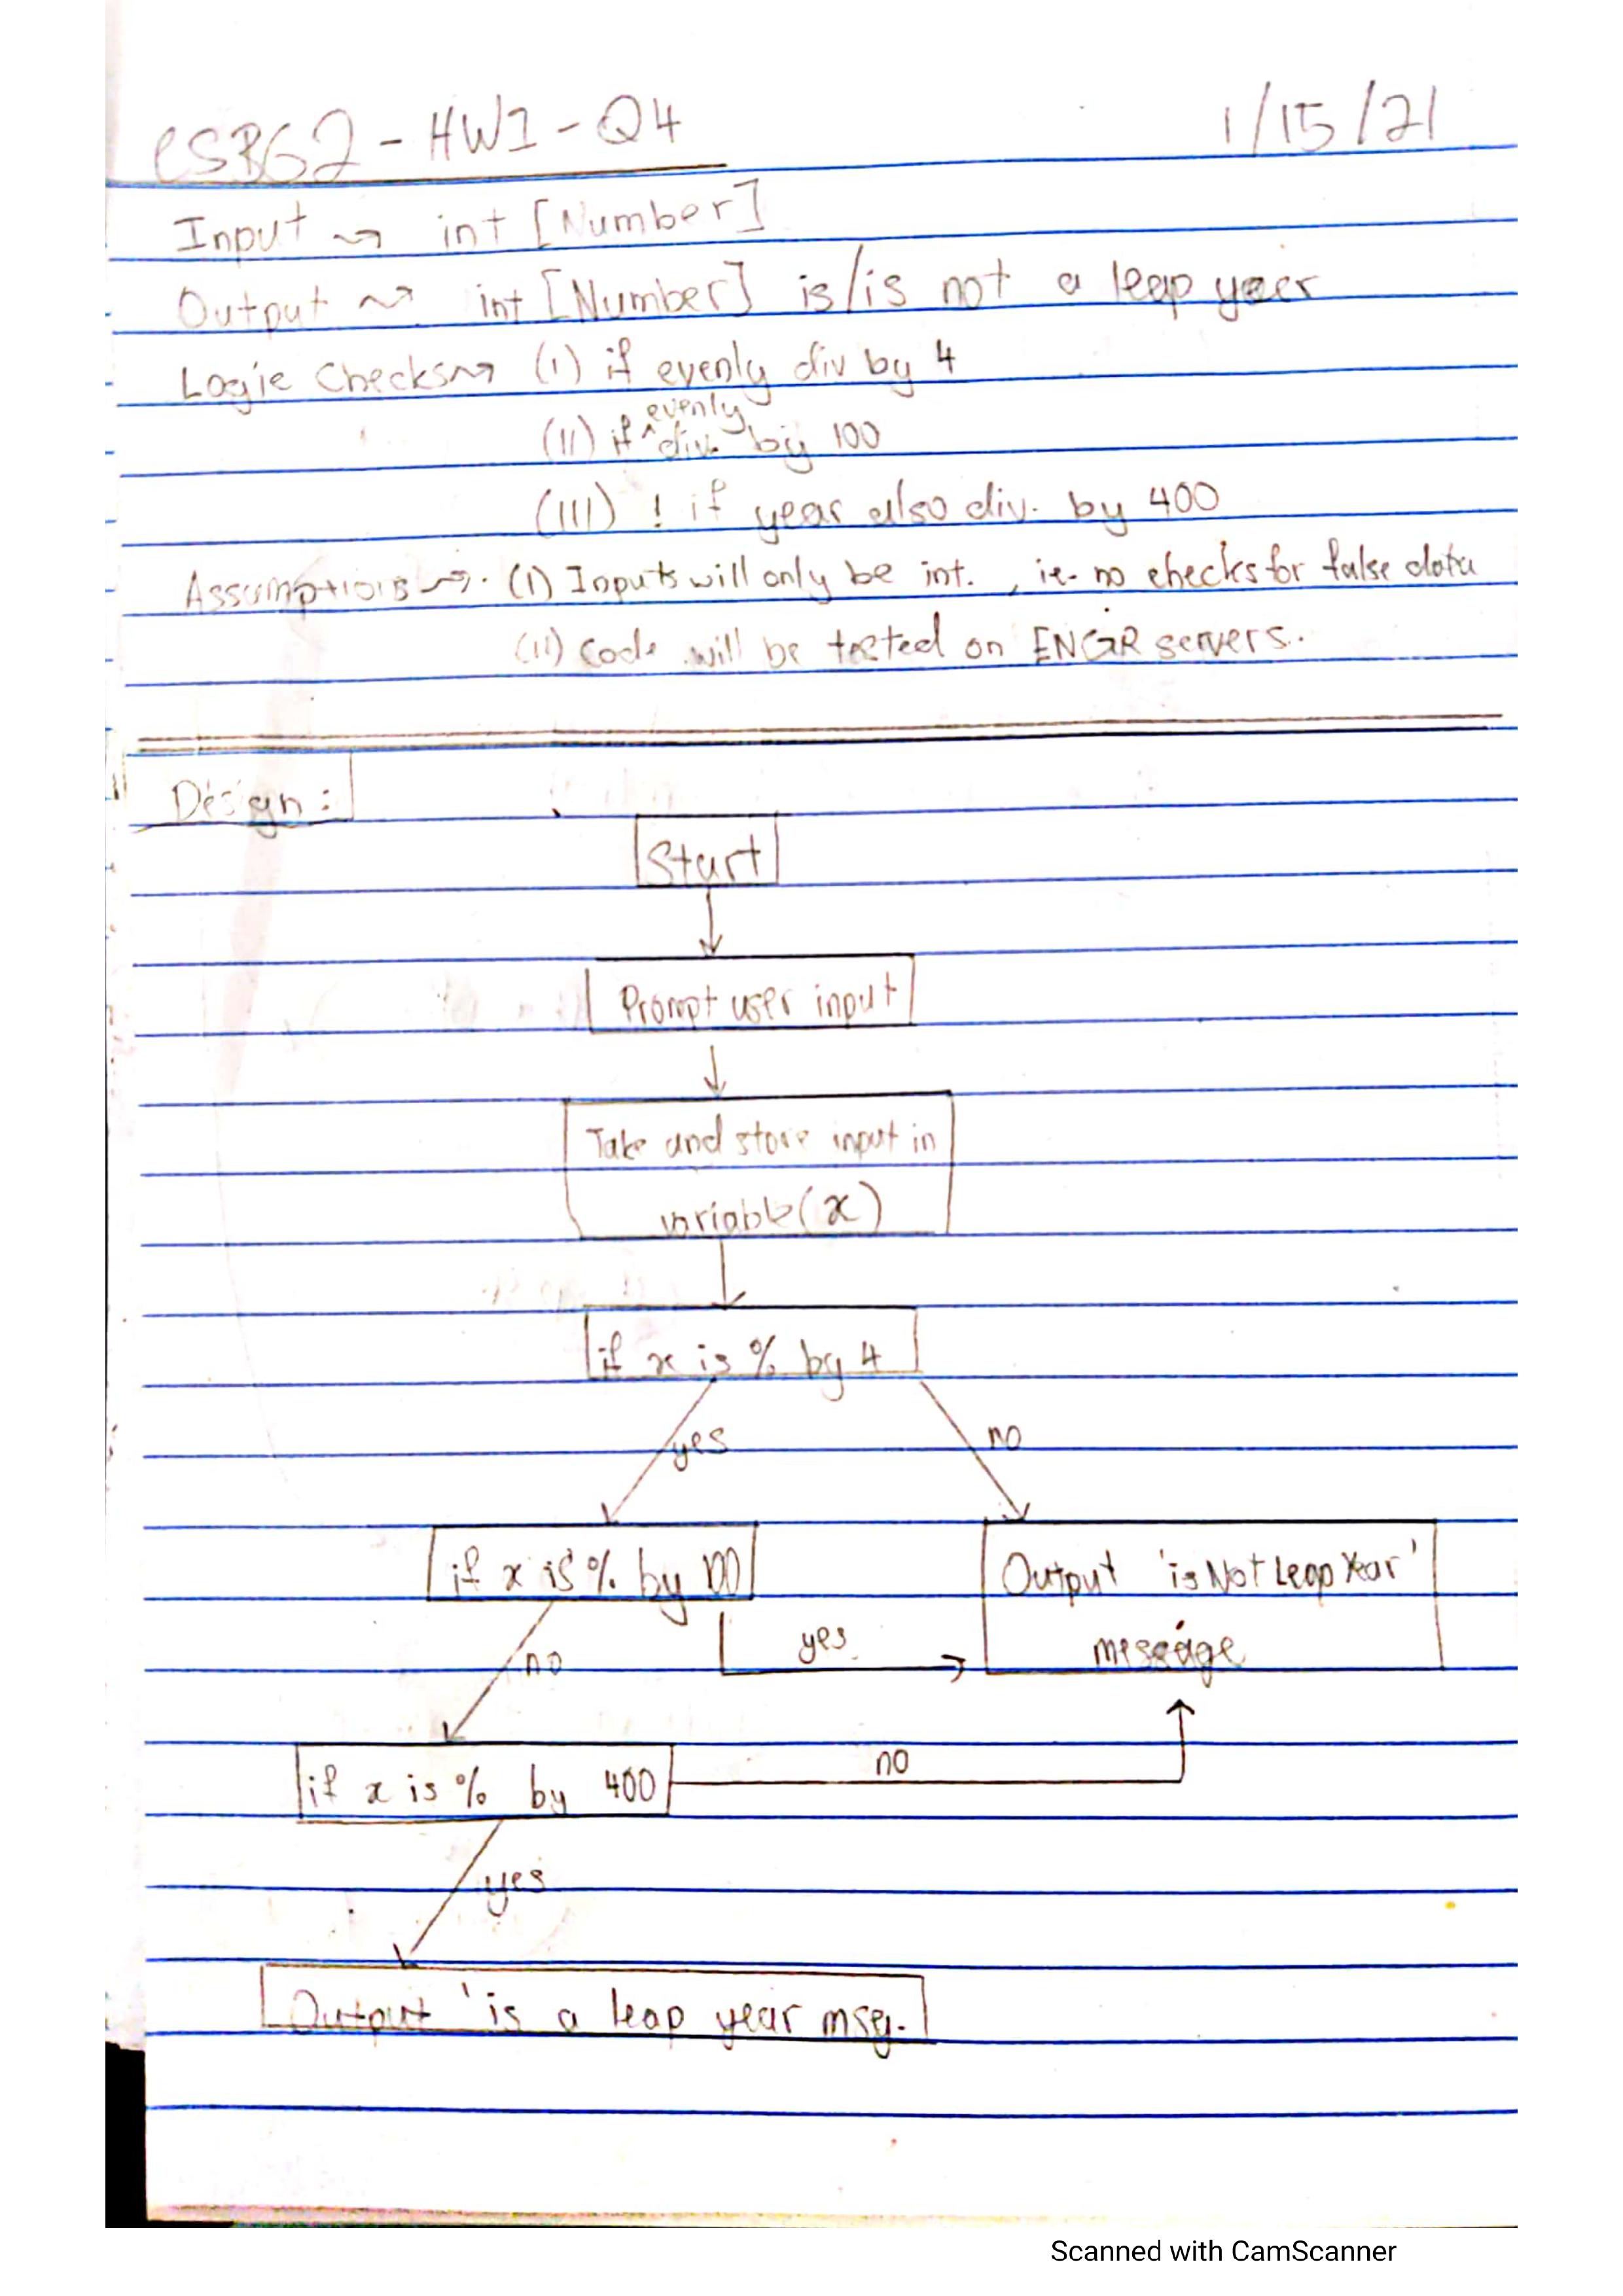 CS362 - HW1 - Q4 1/15/21
Input ⇝ int [Number]
Output ⇝ int [Number] is/is not a leap year
Logic Checks ⇝ (I) if evenly div by 4
(II) if ^evenly div. by 100
(III) ! if year also div. by 400
Assumptions ⇝ (I) Inputs will only be int., ie. no checks for false data
(II) Code will be tested on ENGR servers.
Design:
Start
Prompt user input
Take and store input in
variable (x)
if x is % by 4
yes no
if x is % by 100 Output 'is Not Leap Year'
message
no yes
if x is % by 400 no
yes
Output 'is a leap year msg.
Scanned with CamScanner